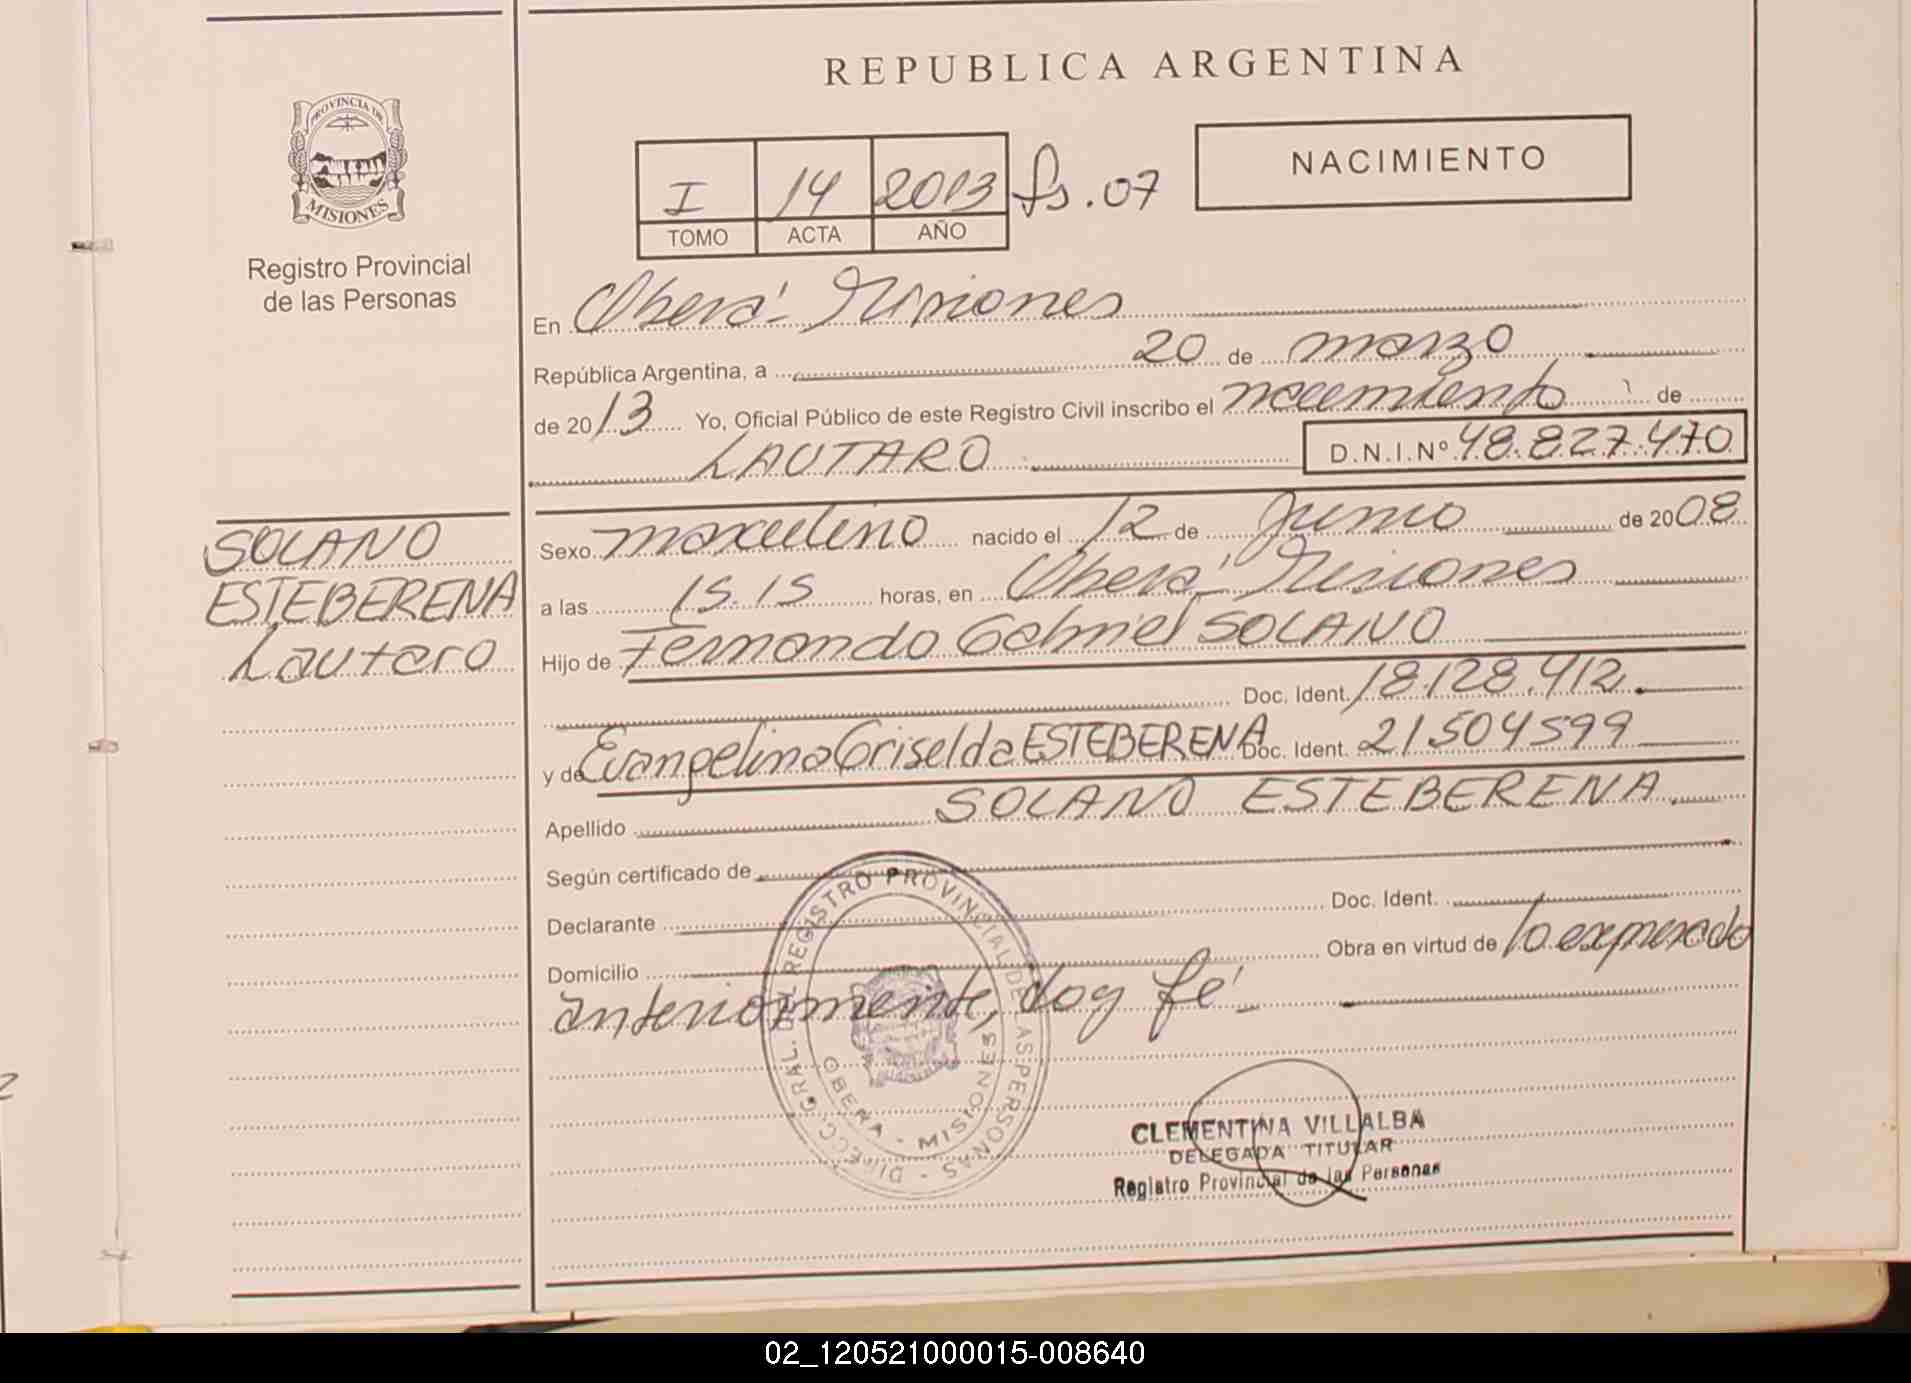 REPUBLICA ARGENTINA
PROVINCIA DE
MISIONES
Registro Provincial
de las Personas
I 14 2013 fs. 07
TOMO ACTA AÑO
NACIMIENTO
En Oberá - Misiones
República Argentina, a 20 de marzo
de 2013 Yo, Oficial Público de este Registro Civil inscribo el nacimiento de
LAUTARO D.N.I.Nº 48.827.470
SOLANO
ESTEBERENA
Lautaro
Sexo masculino nacido el 12 de Junio de 2008
a las 15.15 horas, en Oberá - Misiones
Hijo de Fernando Gabriel SOLANO
Doc. Ident. 18.128.412
y de Evangelina Griselda ESTEBERENA Doc. Ident. 21504599
Apellido SOLANO ESTEBERENA
Según certificado de
Declarante Doc. Ident.
Domicilio Obra en virtud de lo expresado
anteriormente, doy fé -
DIRECC. GRAL. DEL REGISTRO PROVINCIAL DE LAS PERSONAS
OBERA - MISIONES
CLEMENTINA VILLALBA
DELEGADA TITULAR
Registro Provincial de las Personas
02_120521000015-008640